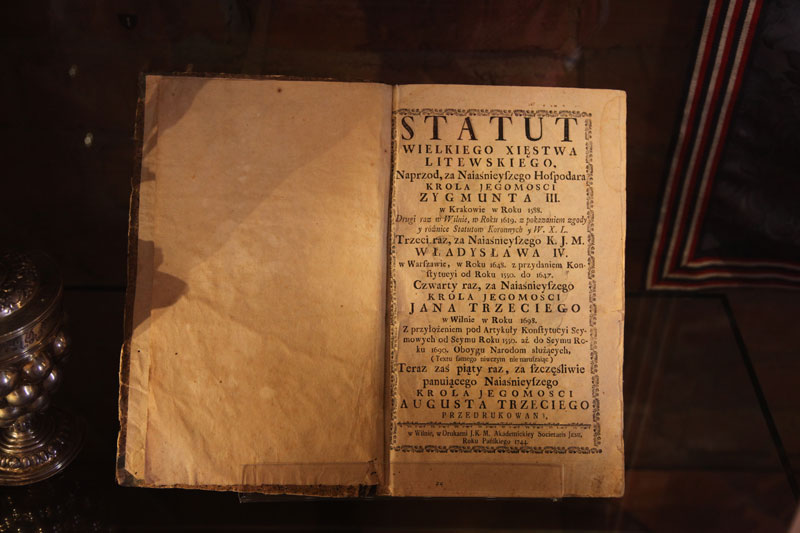 STATUT
WIELKIEGO XIĘSTWA
LITEWSKIEGO,
Naprzod, za Naiaśnieyſzego Hoſpodara
KROLA JEGOMOSCI
ZYGMUNTA III.
w Krakowie w Roku 1588.
Drugi raz w Wilnie, w Roku 1619. z pokazaniem zgody
y rożnice Statutow Koronnych y W. X. L.
Trzeci raz, za Naiaśnieyſzego K. J. M.
WŁADYSŁAWA IV.
w Warſzawie, w Roku 1648. z przydaniem Kon-
ſtytucyi od Roku 1550. do 1647.
Czwarty raz, za Naiaśnieyſzego
KROLA JEGOMOSCI
JANA TRZECIEGO
w Wilnie w Roku 1698.
Z przyłożeniem pod Artykuły Konſtytucyi Sey-
mowych od Seymu Roku 1550. aż do Seymu Ro-
ku 1690. Oboygu Narodom służących,
( Textu ſamego niwczym nie naruſzaiąc )
Teraz zaś piąty raz, za ſzczęśliwie
panuiącego Naiaśnieyſzego
KROLA JEGOMOSCI
AUGUSTA TRZECIEGO
PRZEDRUKOWANY,
w Wilnie, w Drukarni J. K. M. Akademickiey Societatis Jesu,
Roku Pańſkiego 1744.